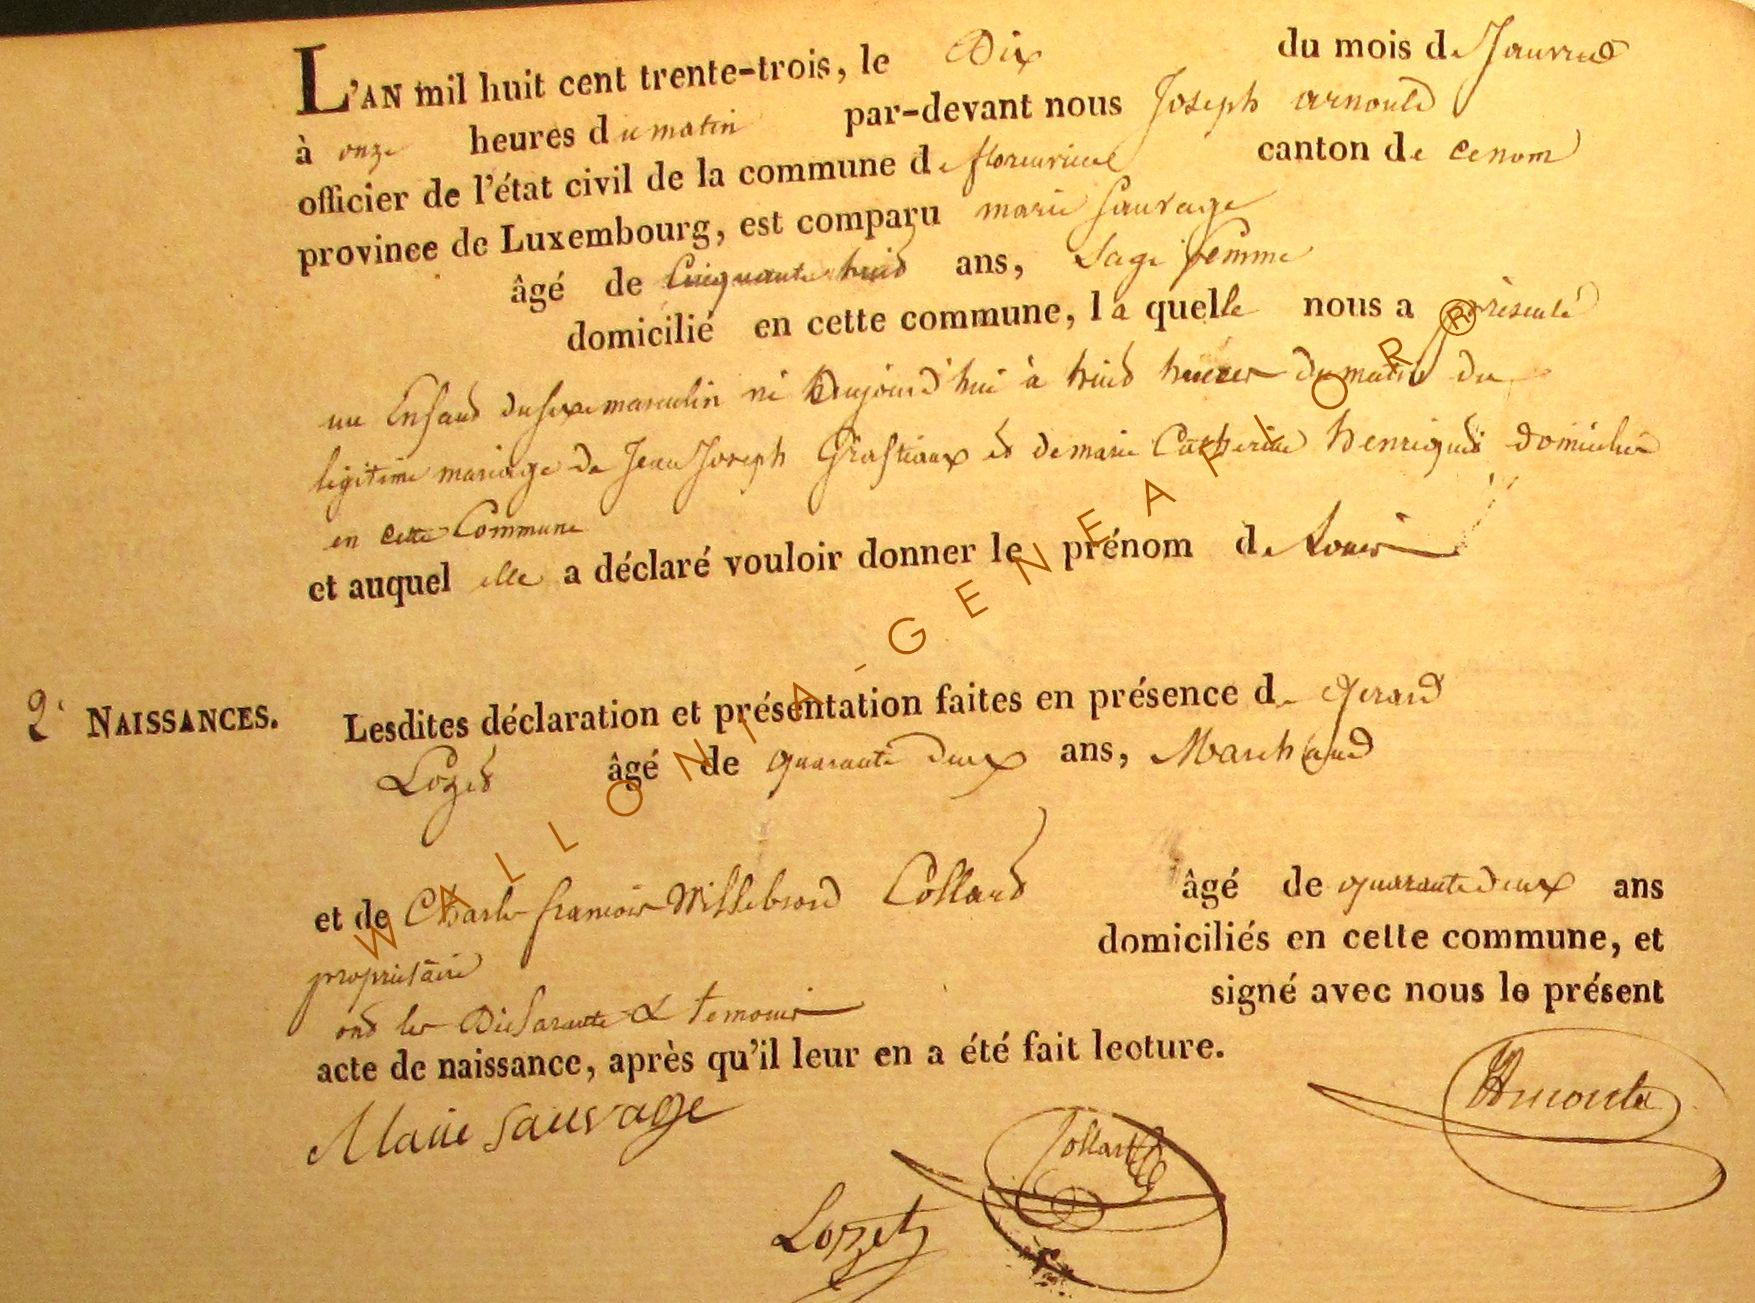 L'AN mil huit cent trente-trois, le Dix du mois de Janvier
à onze heures du matin par-devant nous Joseph arnould
officier de l'état civil de la commune de florenville canton de
province de Luxembourg, est comparu marie Sauvage
âgé de Cinquante huid ans, Sage femme
domicilié en cette commune, la quelle nous a présenté
un Enfand du sexe masculin né aujourd'hui à huid heures du matin du
légitime mariage de Jean Joseph Grostiaux ed de marie Catherine henriqued domiciliés
en cette Commune
et auquel elle a déclaré vouloir donner le prénom de Louis
2e NAISSANCES. Lesdites déclaration et présentation faites en présence de Gerard
Lozed âgé de quarante deux ans, Marchand
et de Charles francois Willebrord Collard âgé de quarante deux ans
propriétaire domiciliés en cette commune, et
ond les Déclarante & temoins signé avec nous le présent
acte de naissance, après qu'il leur en a été fait lecture.
Marie Sauvage
Collard
Arnould
Lozet
WALLONIA-GENEAPIOR®